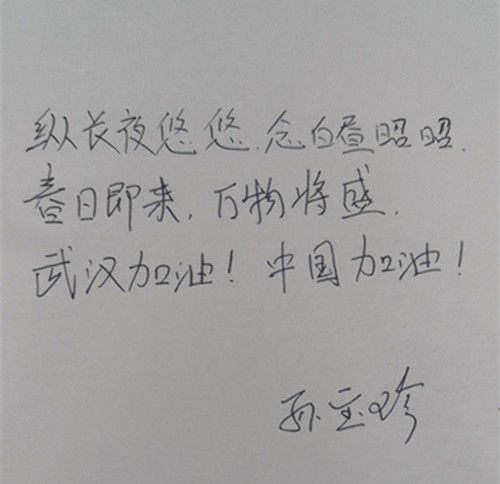 纵长夜悠悠.念白昼昭昭.
春日即来,万物将盛.
武汉加油!中国加油!
孙宝珍